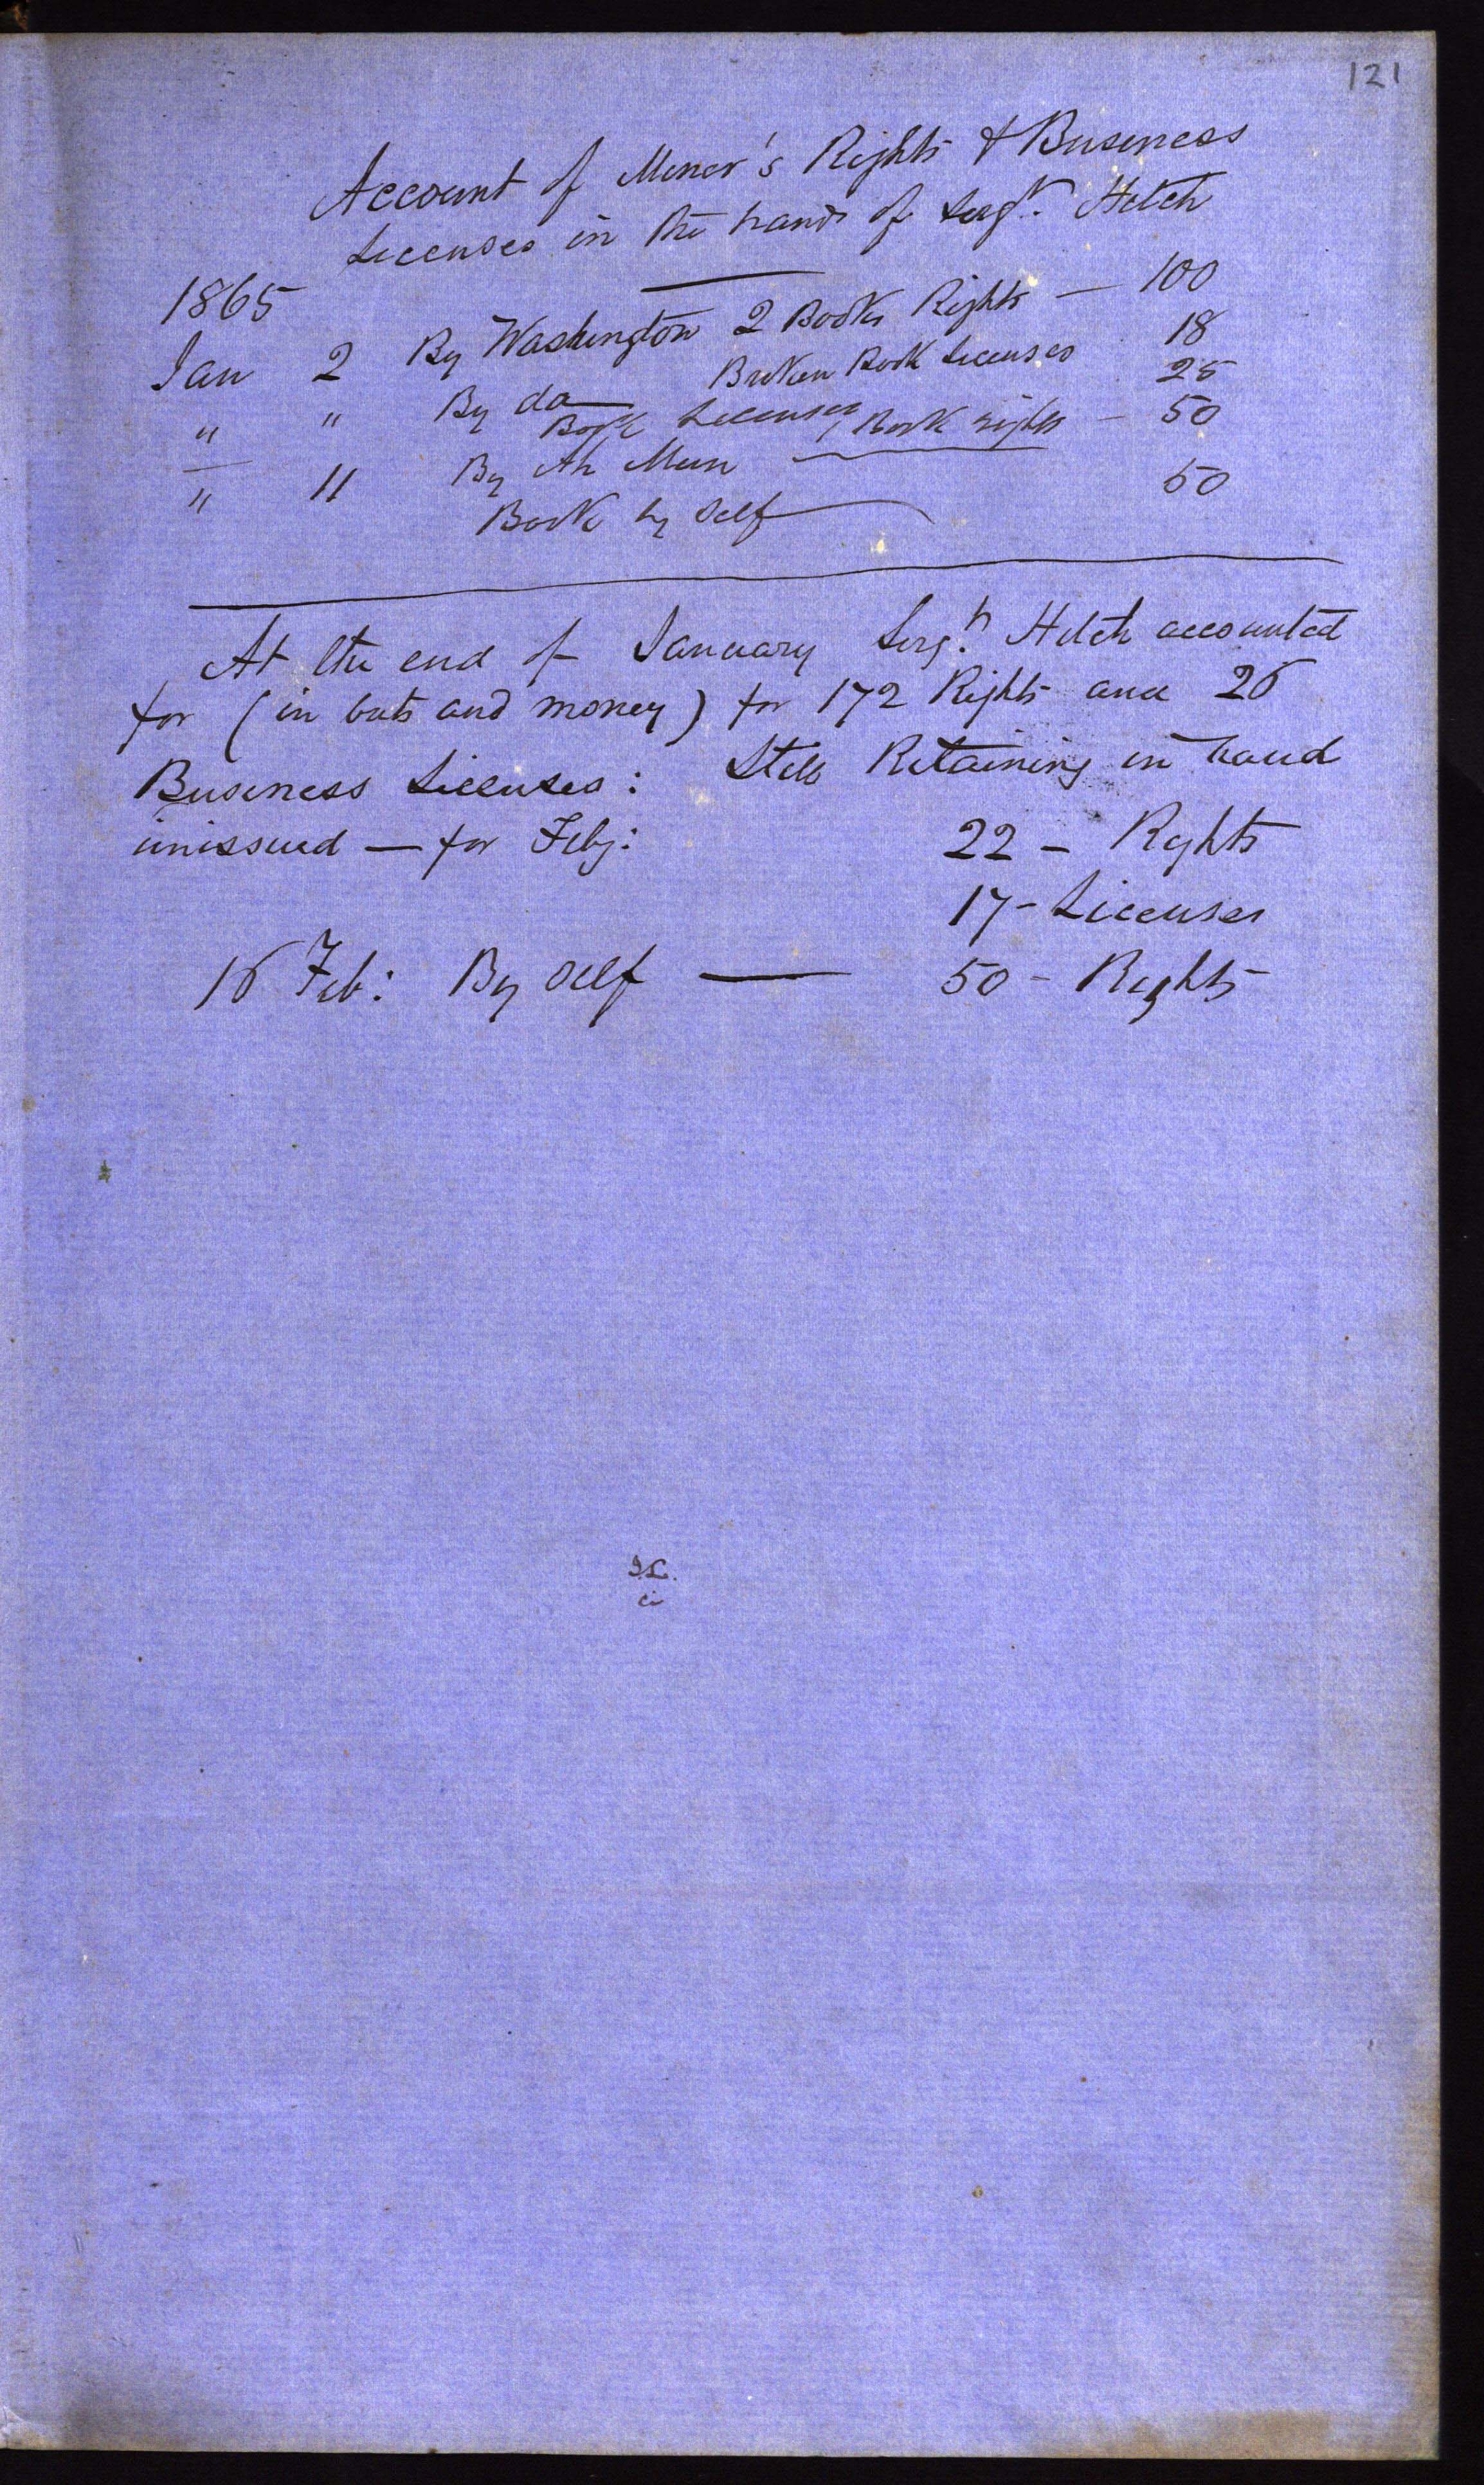 121
Account of Miner's Rights & Business
Licenses in the hands of Sergt. Hitch
1865
Jan 2 By Washington 2 Books Rights — 100
" " By do Broken Book Licenses 18
Book Licenses 25
" 11 By Ah Mun Book rights — 50
Book by Self 50
At the end of January Sergt. Hitch accounted
for (in buts and money) for 172 Rights and 26
Business Licenses: Still Retaining in hand
unissued — for Feby: 22 - Rights
17 - Licenses
16 Feb: By self — 50 - Rights